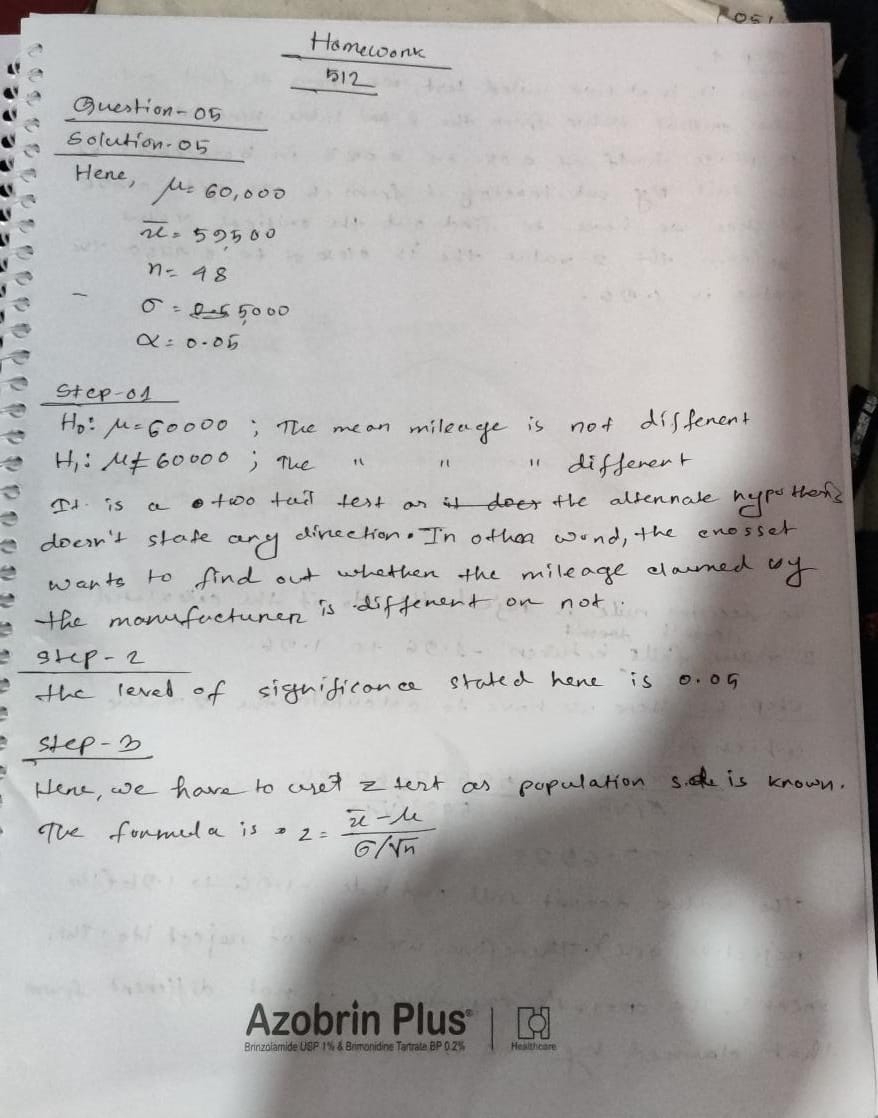 051
Homework
512
Question-05
Solution-05
Here,
μ= 60,000
x̄= 59,500
n= 48
σ = 5,000
α = 0.05
Step-01
H₀: μ=60000 ; The mean mileage is not different
H₁: μ≠60000 ; The " " " different
It is a two tail test as the alternate hypothesis
doesn't state any direction. In other word, the
wants to find out whether the mileage claimed by
the manufacturer is different or not.
Step-2
the level of significance stated here is 0.05
Step-3
Here, we have to use z test as population s.d. is known.
The formula is z = x̄-μ / σ/√n
Azobrin Plus®
Brinzolamide USP 1% & Brimonidine Tartrate BP 0.2%
Healthcare